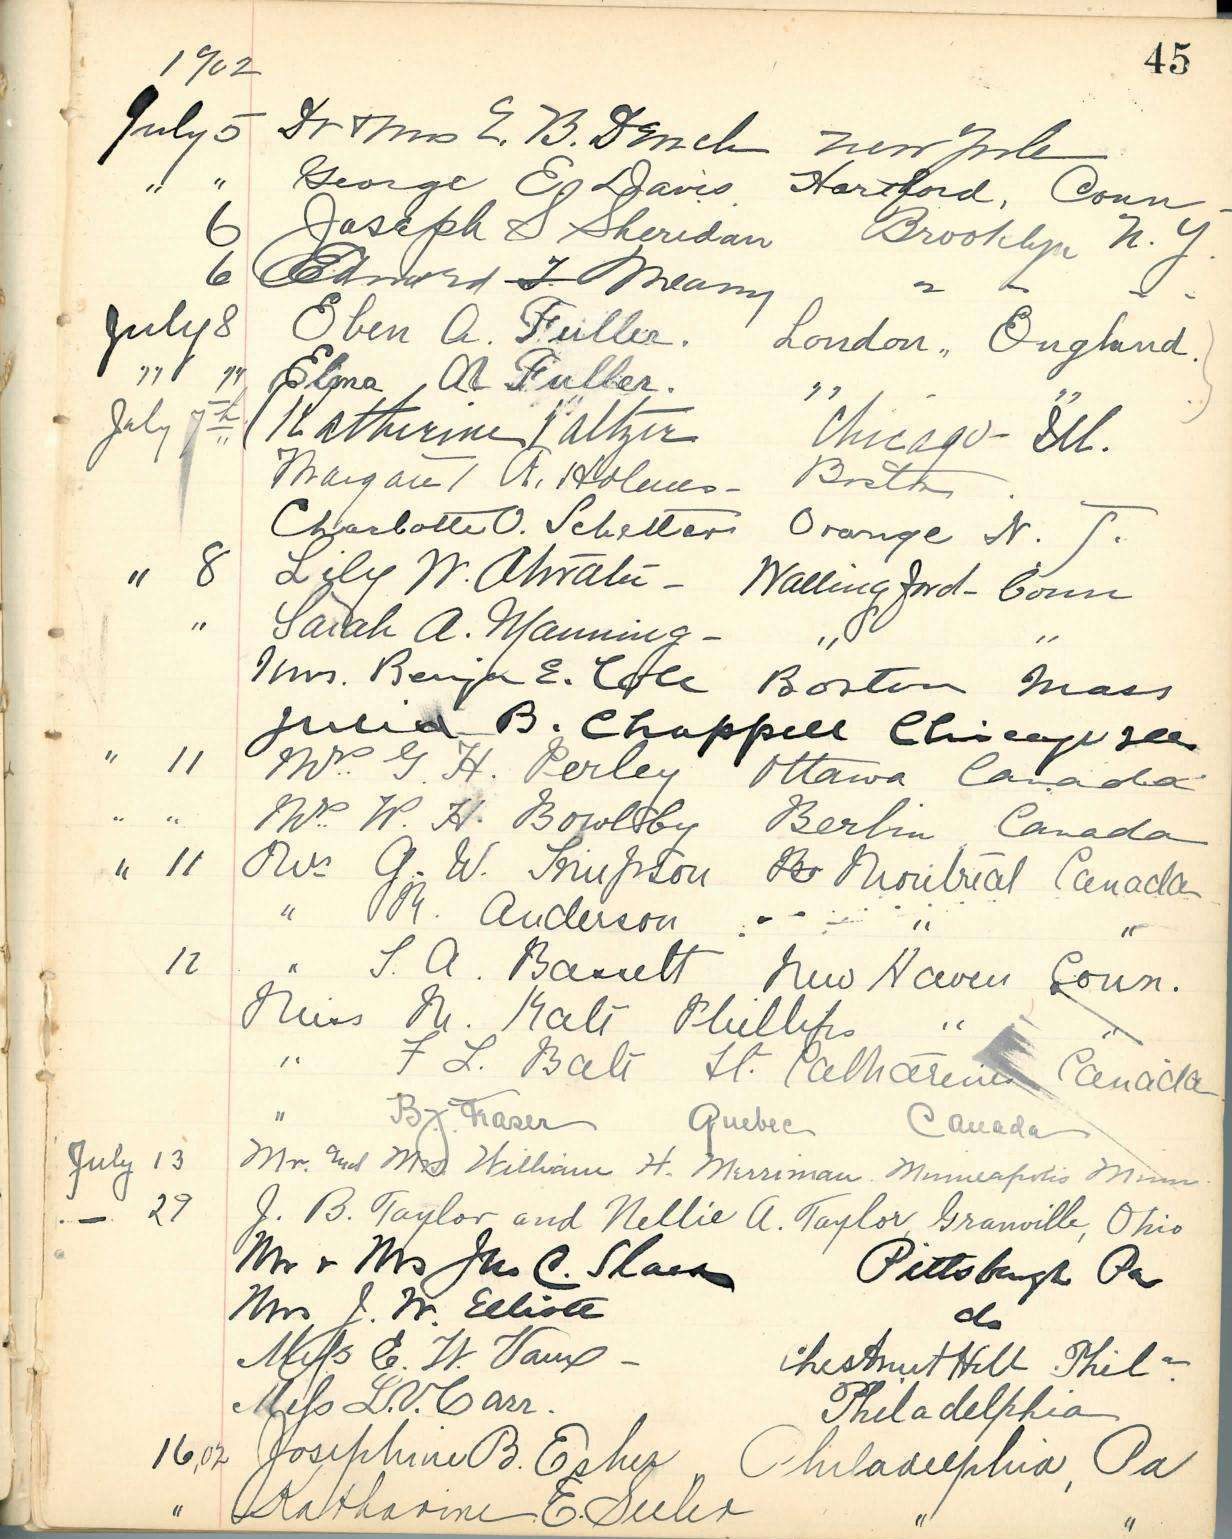 45
1902
July 5 Dr & Mrs E. B. Dench New York
" " George E. Davis. Hartford, Conn
6 Joseph S Sheridan Brooklyn N. Y.
6 Edward F. Meany " " " "
July 8 Eben A. Fuller. London, England.
" " Elma A. Fuller. " "
July 7th Katherine Paltzer Chicago - Ill.
Margaret A. Holmes - Boston.
Charlotte O. Schetter Orange N. J.
" 8 Lily W. - Wallingford - Conn
" Sarah A. Manning - " "
Mrs. Benja E. Cole Boston Mass
Julia B. Chappell Chicago Ill
" 11 Mrs. G. H. Perley Ottawa Canada
" " Mrs. W. H. Bowlby Berlin Canada
" 11 Mrs G. W. Simpson Montreal Canada
" M. Anderson " "
12 " S. A. Bassett New Haven Conn.
Miss M. Kate Phillips " "
" F L. Bate St. Catharines Canada
" B. J. Fraser Quebec Canada
July 13 Mr. and Mrs William H. Merriman Minneapolis Minn.
" - 29 J. B. Taylor and Nellie A. Taylor, Granville, Ohio
Mr & Mrs Jno C. Slack Pittsburgh Pa
Mrs J. W. Elliott do
Miss E. W. Vaux - Chestnut Hill Phila.
Miss L. V. Carr. Philadelphia
16, 02 Josephine B. Esher, Philadelphia, Pa
" Katharine E. Seeler " "